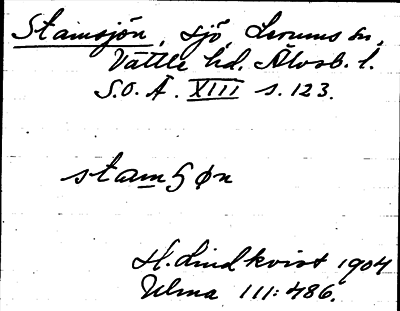 Stamsjön, sjö, Lerums sn,
Vättle hd. Älvsb. l.
S.O.Ä. XIII s. 123.
stamʂøn
H. Lindkvist 1904
Ulma 111:486.